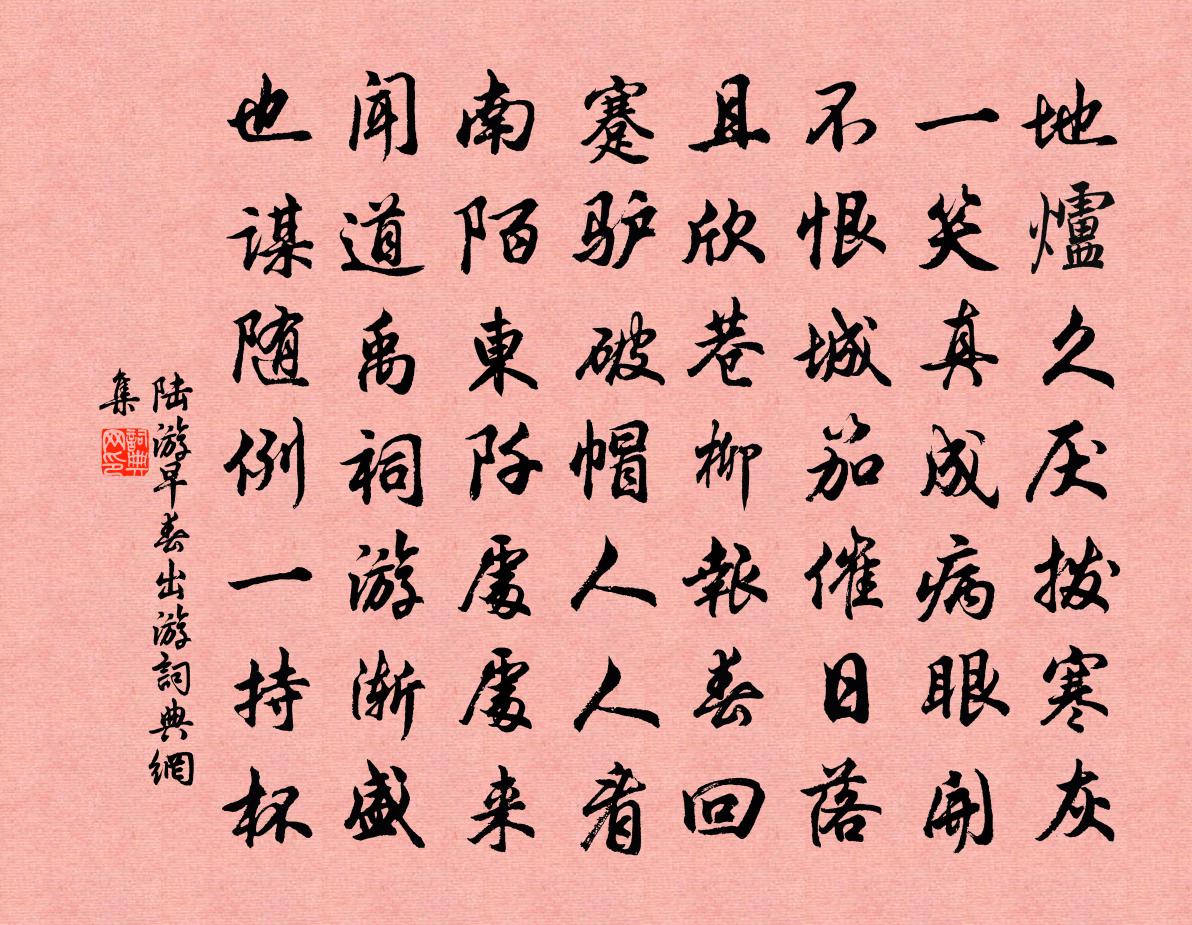 地爐久厌拨寒灰
一笑真成病眼開
不恨城笳催日落
且欣巷柳報春回
蹇驴破帽人人看
南陌東阡處處来
闻道禹祠游渐盛
也谋随例一持杯
陆游早春出游詞典網
集
詞典网印